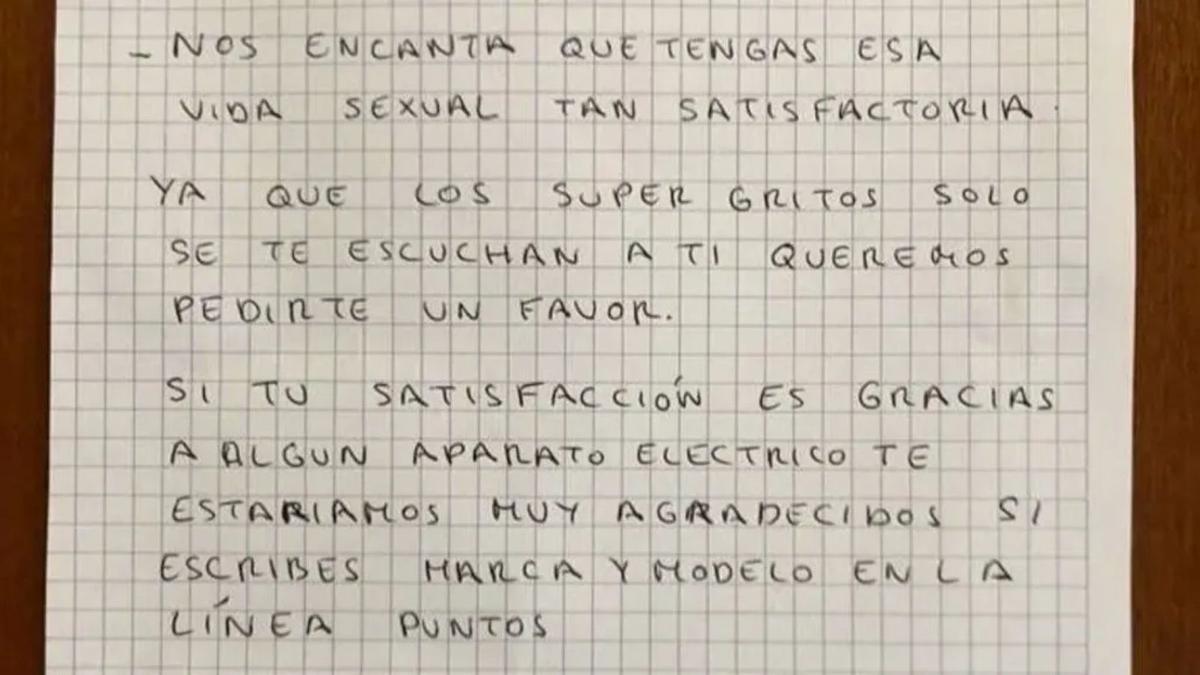 - NOS ENCANTA QUE TENGAS ESA
VIDA SEXUAL TAN SATISFACTORIA.
YA QUE LOS SUPER GRITOS SOLO
SE TE ESCUCHAN A TI QUEREMOS
PEDIRTE UN FAVOR.
SI TU SATISFACCIÓN ES GRACIAS
A ALGUN APARATO ELECTRICO TE
ESTARIAMOS MUY AGRADECIDOS SI
ESCRIBES MARCA Y MODELO EN LA
LÍNEA PUNTOS